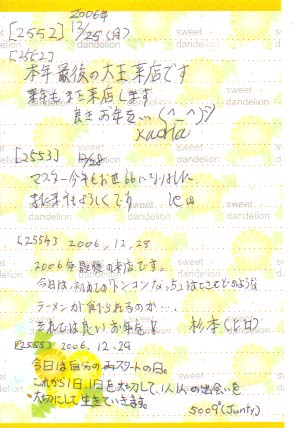 2006年
[2552] 12/25(月)
[2552]
本年最後の大王来店です
来年もまた来店します
良きお年を…(^_^)
[2553] 12/28
マスター今年もお世話になりました
また来年もよろしくです 池田
[2554] 2006.12.28
2006年最後の来店です。
今日は初めての「トンコン
ラーメンが食べられるのか…。
それでは良いお年を! 杉本
[2555] 2006.12.29
今日は自分の再スタートの日。
これから1日1日を大切にして、1人1人の出会いを
大切にして生きていきます。
5009(Junty)
sweet
dandelion